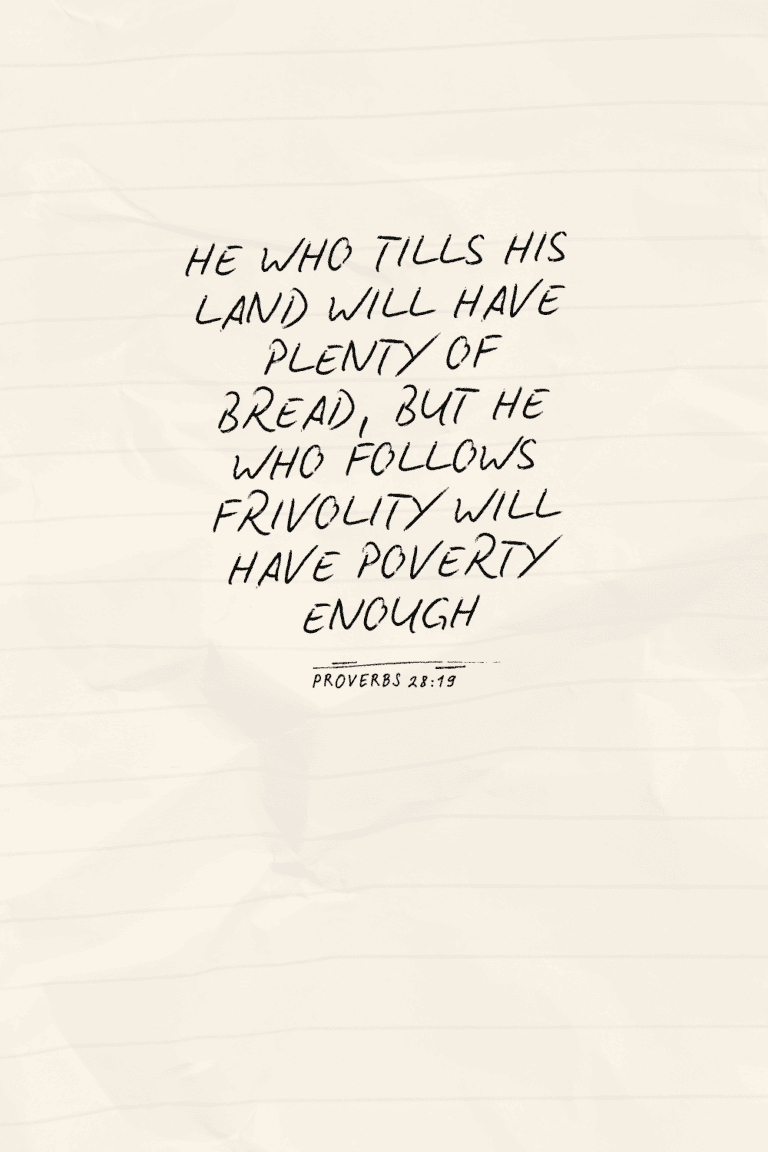 HE WHO TILLS HIS
LAND WILL HAVE
PLENTY OF
BREAD, BUT HE
WHO FOLLOWS
FRIVOLITY WILL
HAVE POVERTY
ENOUGH
PROVERBS 28:19